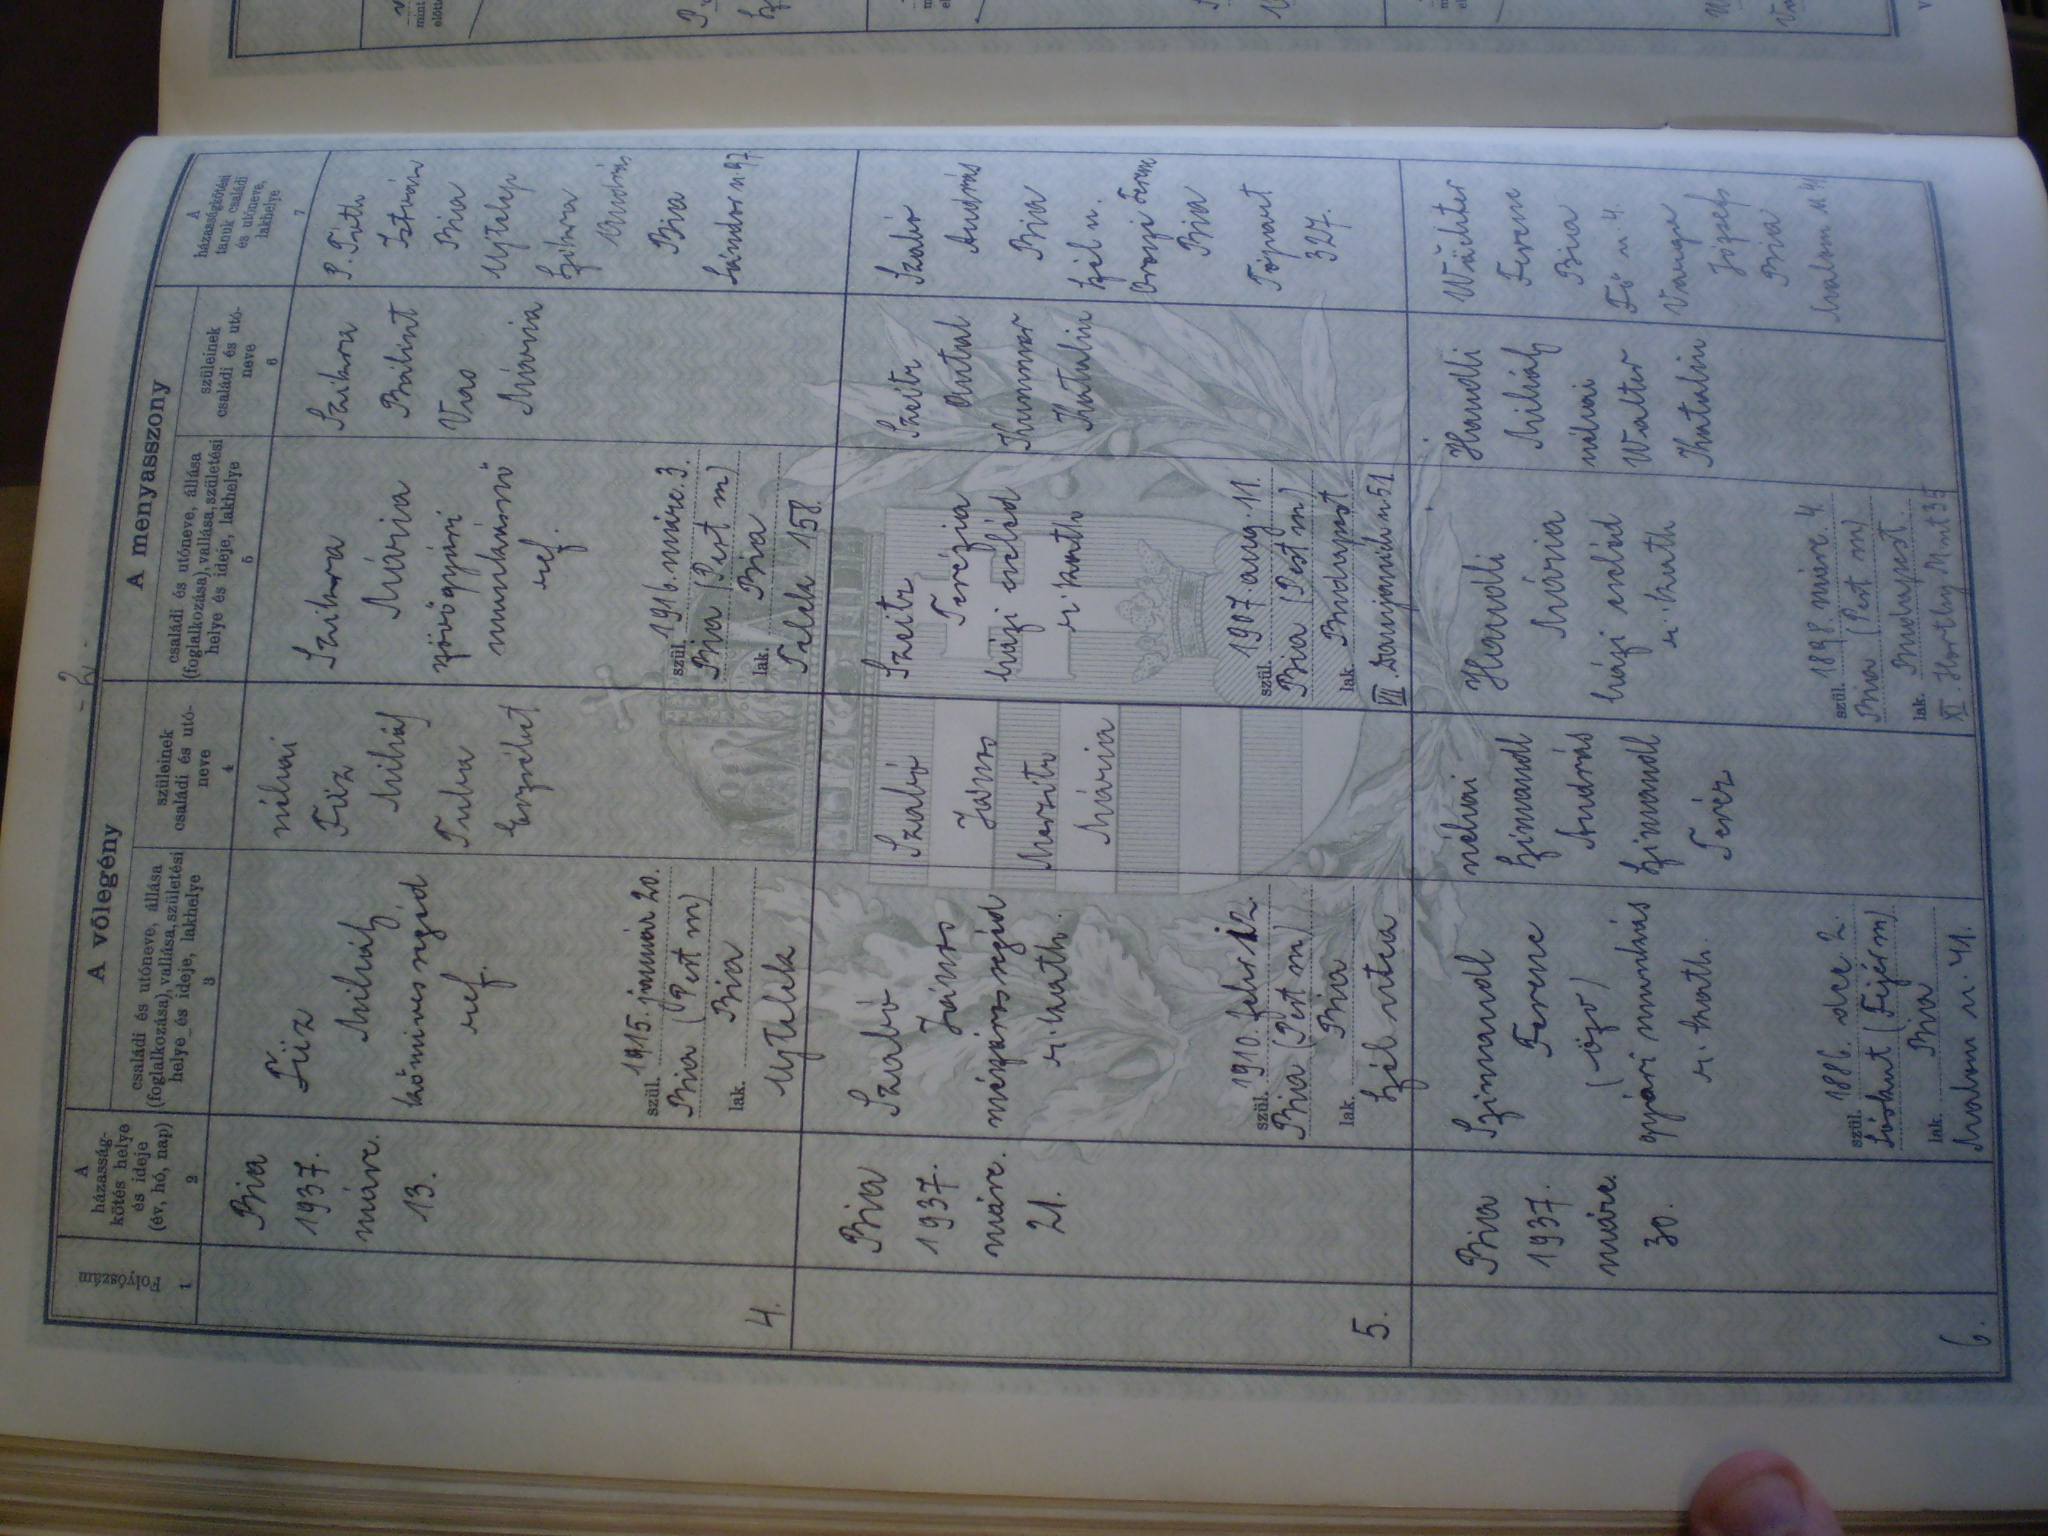 - 2 -
Folyószám
1
A
házasság-
kötés helye
és ideje
(év, hó, nap)
2
A vőlegény
családi és utóneve, állása
(foglalkozása), vallása, születési
helye és ideje, lakhelye
3
szüleinek
családi és utó-
neve
4
A menyasszony
családi és utóneve, állása
(foglalkozása), vallása, születési
helye és ideje, lakhelye
5
szüleinek
családi és utó-
neve
6
A
házasságkötési
tanuk családi
és utóneve,
lakhelye
7
4.
Bia
1937.
márc.
13.
Füz
Mihály
kőmives segéd
ref.
szül. 1915. január 20.
Bia (Pest m)
lak. Bia
Ujtelek
néhai
Füz
Mihály
Tuba
Erzsébet
Szikora
Mária
szövőgyári
munkásnő
ref.
szül. 1916. márc. 3.
Bia (Pest m)
lak. Bia
Telek 158.
Szikora
Bálint
Vas
Mária
P. Tóth
István
Bia
Ujtelep
András
Bia
Sándor u. 97.
5.
Bia
1937.
márc.
21.
Szabó
János
mészáros segéd
r. kath.
szül. 1910. febr. 12.
Bia (Pest m)
lak Bia
Szél utca
Szabó
János
Mária
Szeitz
Terézia
házi cseléd
r. kath
szül. 1907. aug. 11.
Bia (Pest m)
lak Budapest
VII. Damjanich u. 51
Szeitz
Antal
Katalin
Szabó
András
Bia
Szél u.
Ferenc
Bia
Tópart
327.
6.
Bia
1937.
márc.
30.
Szimandl
Ferenc
(özv)
gyári munkás
r. kath.
szül. 1886. dec. 2.
Sóskut (Fejér m)
lak. Bia
Malom u. 41.
néhai
Szimandl
András
Szimandl
Teréz
Handli
Mária
házi cseléd
r. kath
szül. 1898. márc. 4.
Bia (Pest m)
lak. Budapest.
XI. Horthy M. út 35
Handli
Mihály
néhai
Walter
Katalin
Wächter
Ferenc
Bia
Fő u. 4.
Varga
József
Bia
Malom u. 41